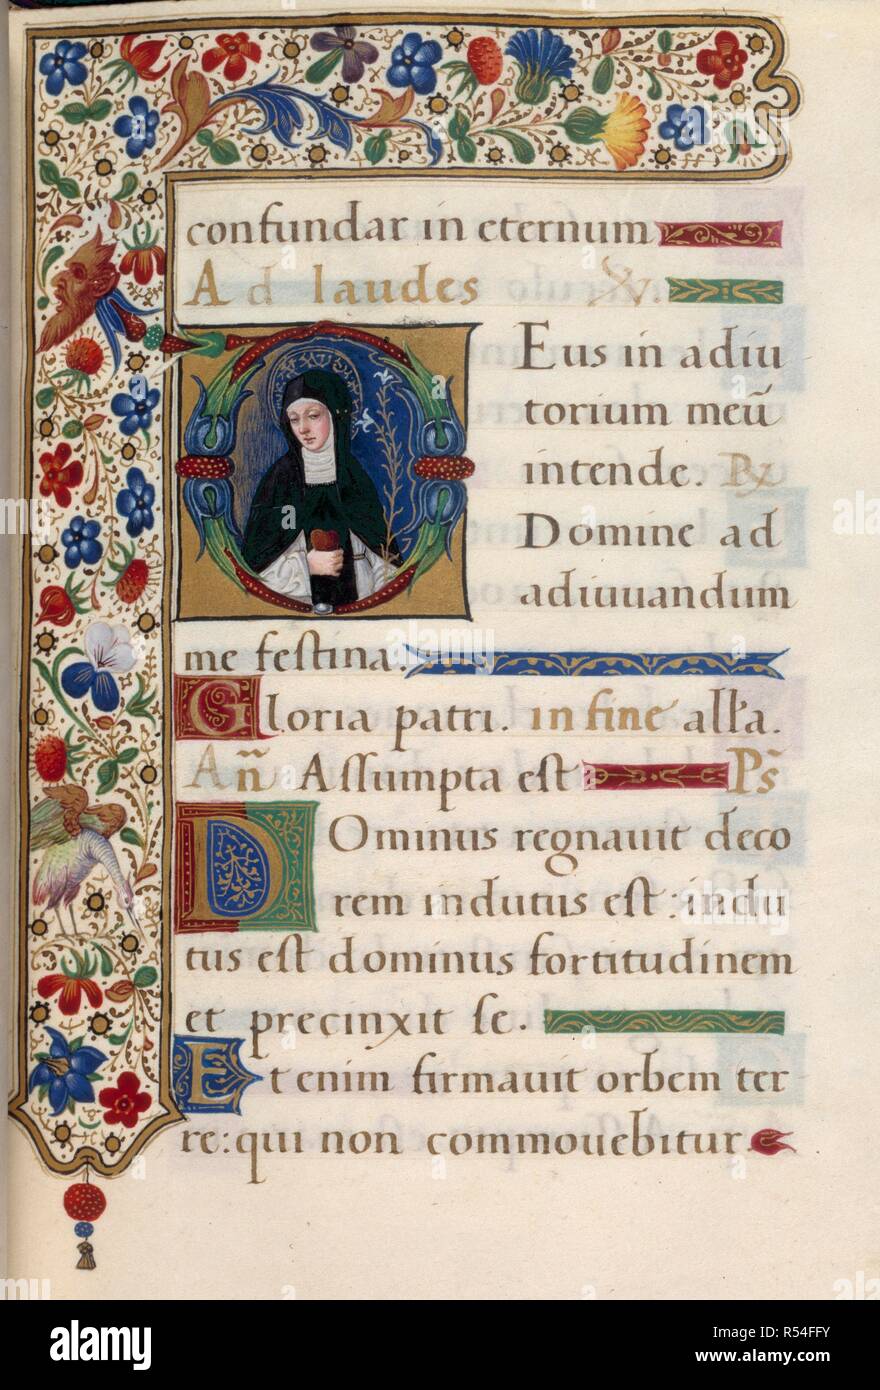 confundar in eternum
Ad laudes V.
Deus in adiu
torium meū
intende. R
Domine ad
adiuuandum
me festina.
Gloria patri. in fine alła.
Añ Assumpta est Ps̄
Dominus regnauit deco
rem indutus est: indu
tus est dominus fortitudinem
et precinxit se.
Et enim firmauit orbem ter
re: qui non commouebitur.
alamy
Image ID: R54FFY
www.alamy.com